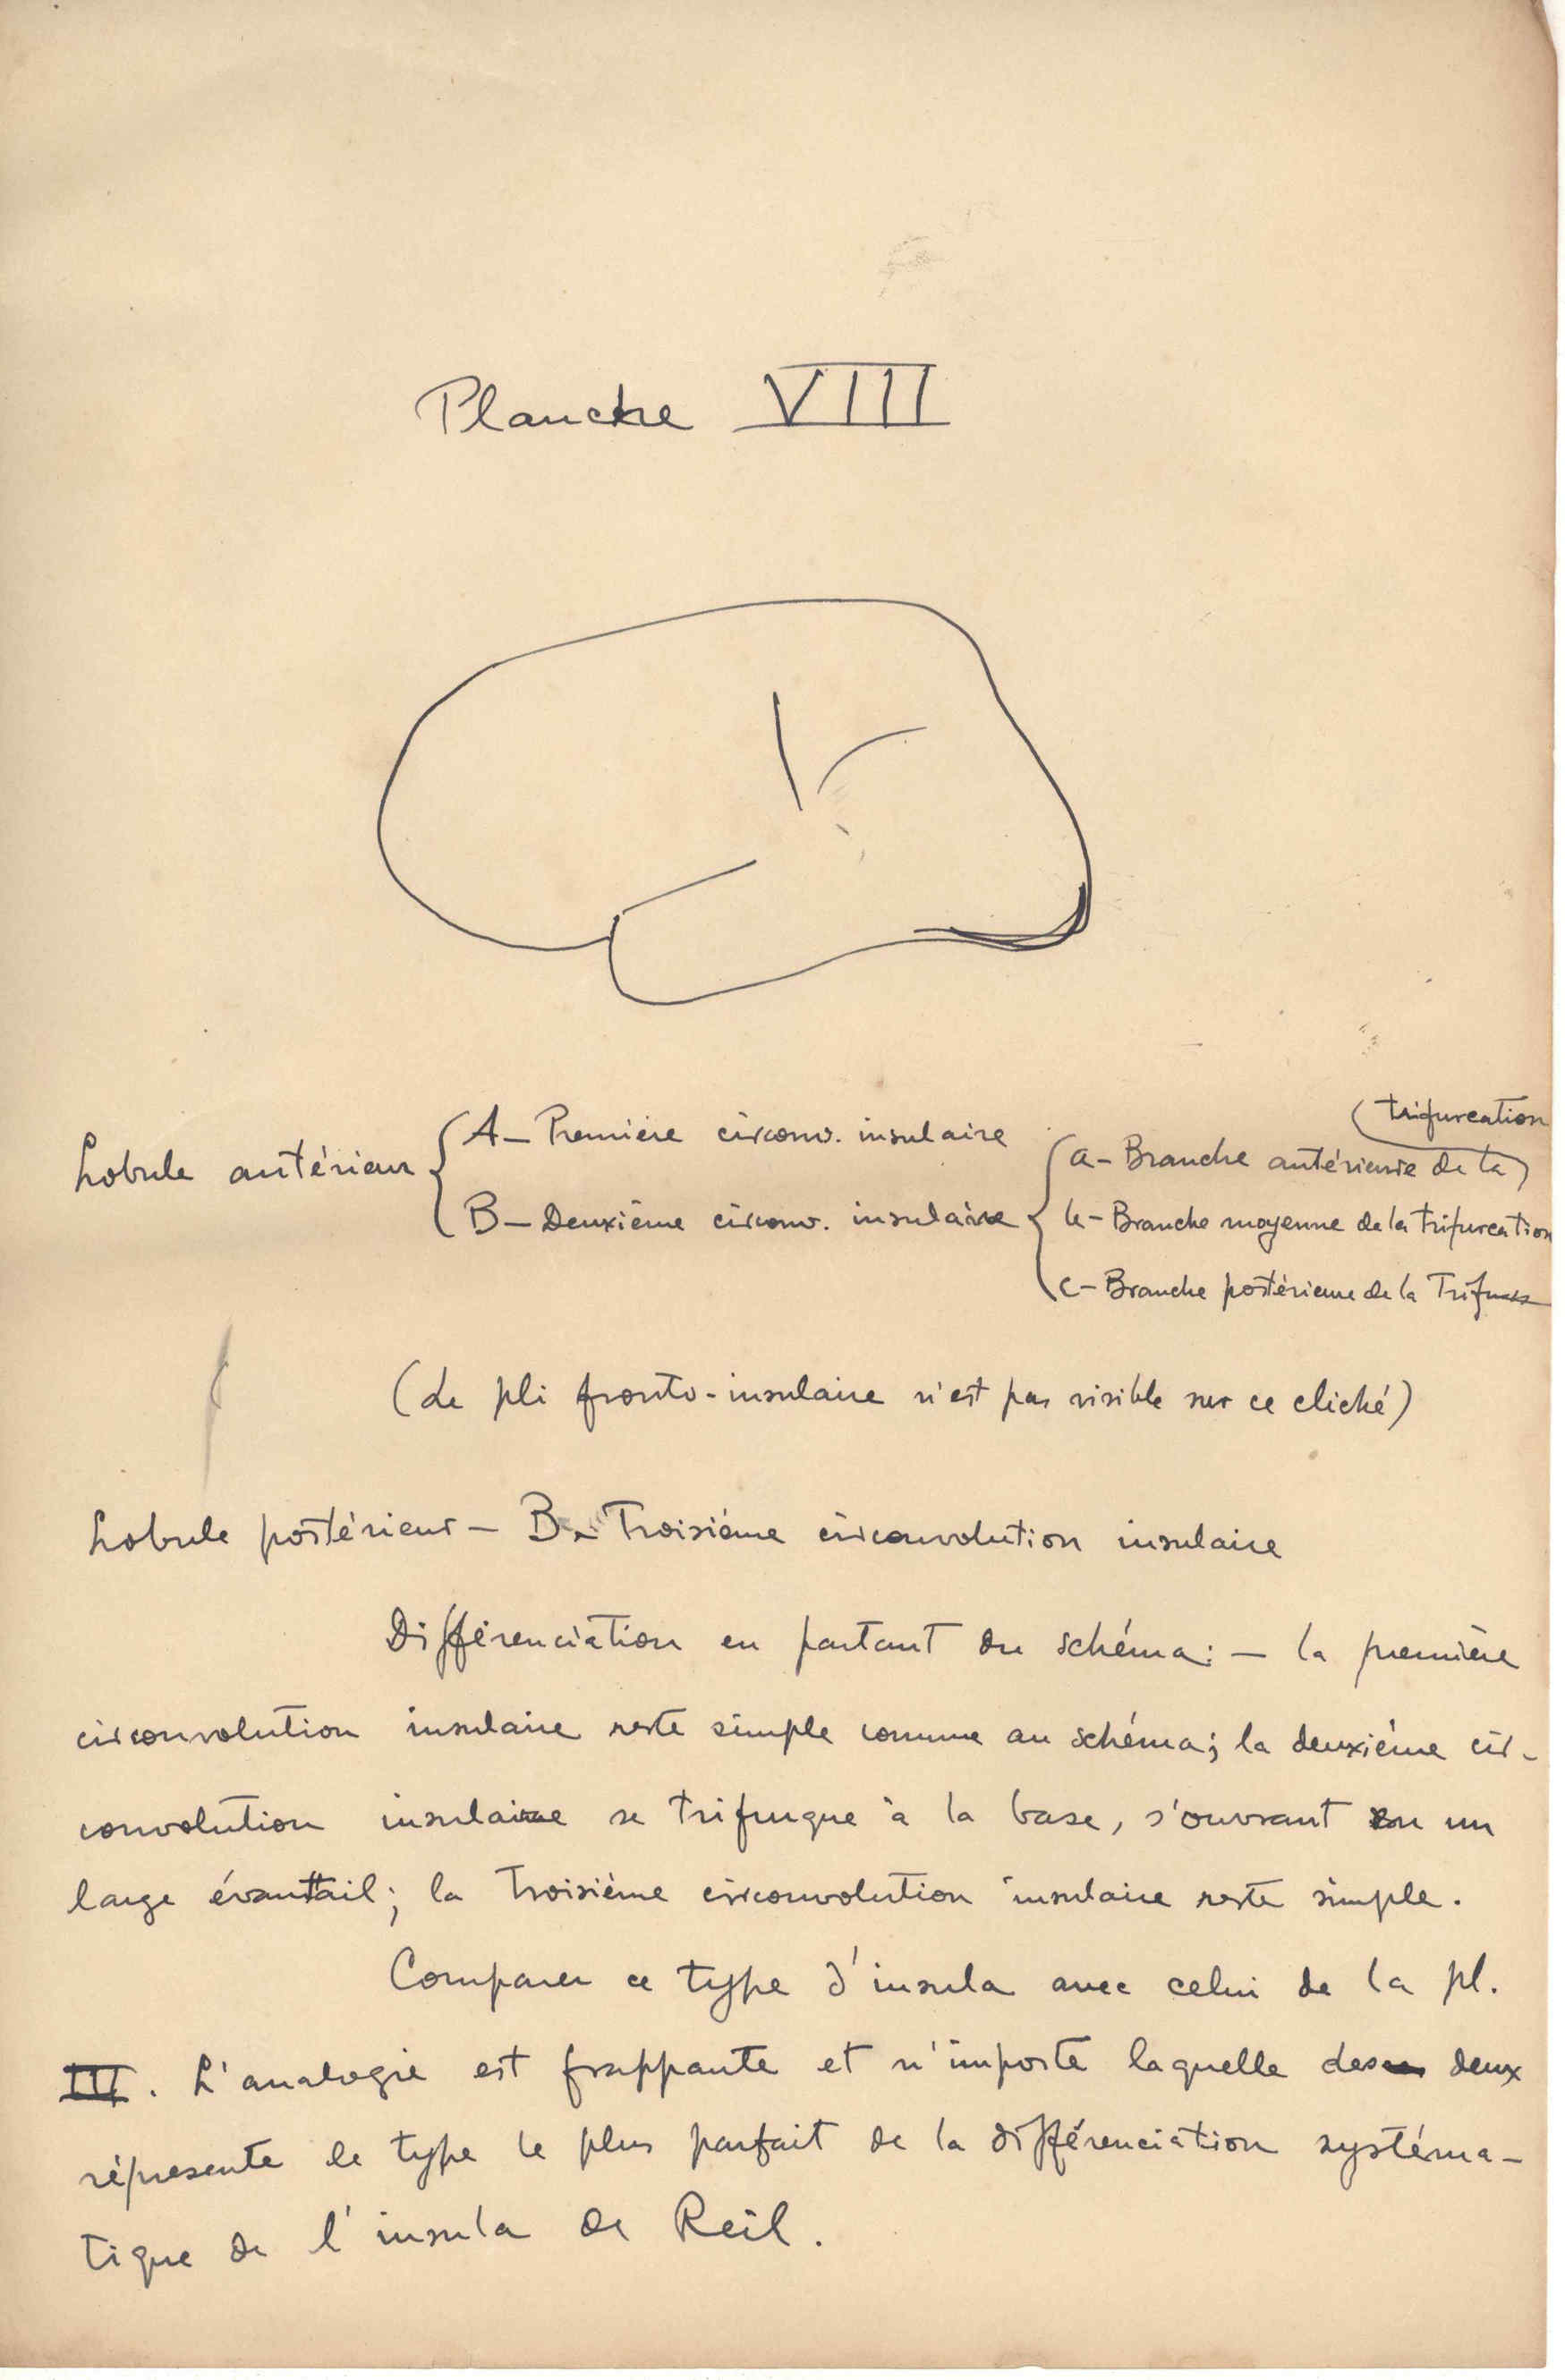 Planche VIII
Lobule antérieur { A – Première circonv. insulaire
B – Deuxième circonv. insulaire { a – Branche antérieure de la (trifurcation
b – Branche moyenne de la trifurcation
c – Branche postérieure de la Trifurc
(Le pli fronto-insulaire n'est pas visible sur ce cliché)
Lobule postérieur – B – Troisième circonvolution insulaire
Différenciation en partant du schéma : – la première
circonvolution insulaire reste simple comme au schéma ; la deuxième cir-
convolution insulaire se trifurque à la base, s'ouvrant en un
large évantail ; la troisième circonvolution insulaire reste simple.
Comparer ce type d'insula avec celui de la pl.
III. L'analogie est frappante et n'importe laquelle des deux
répresente le type le plus parfait de la différenciation systéma-
tique de l'insula de Reil.